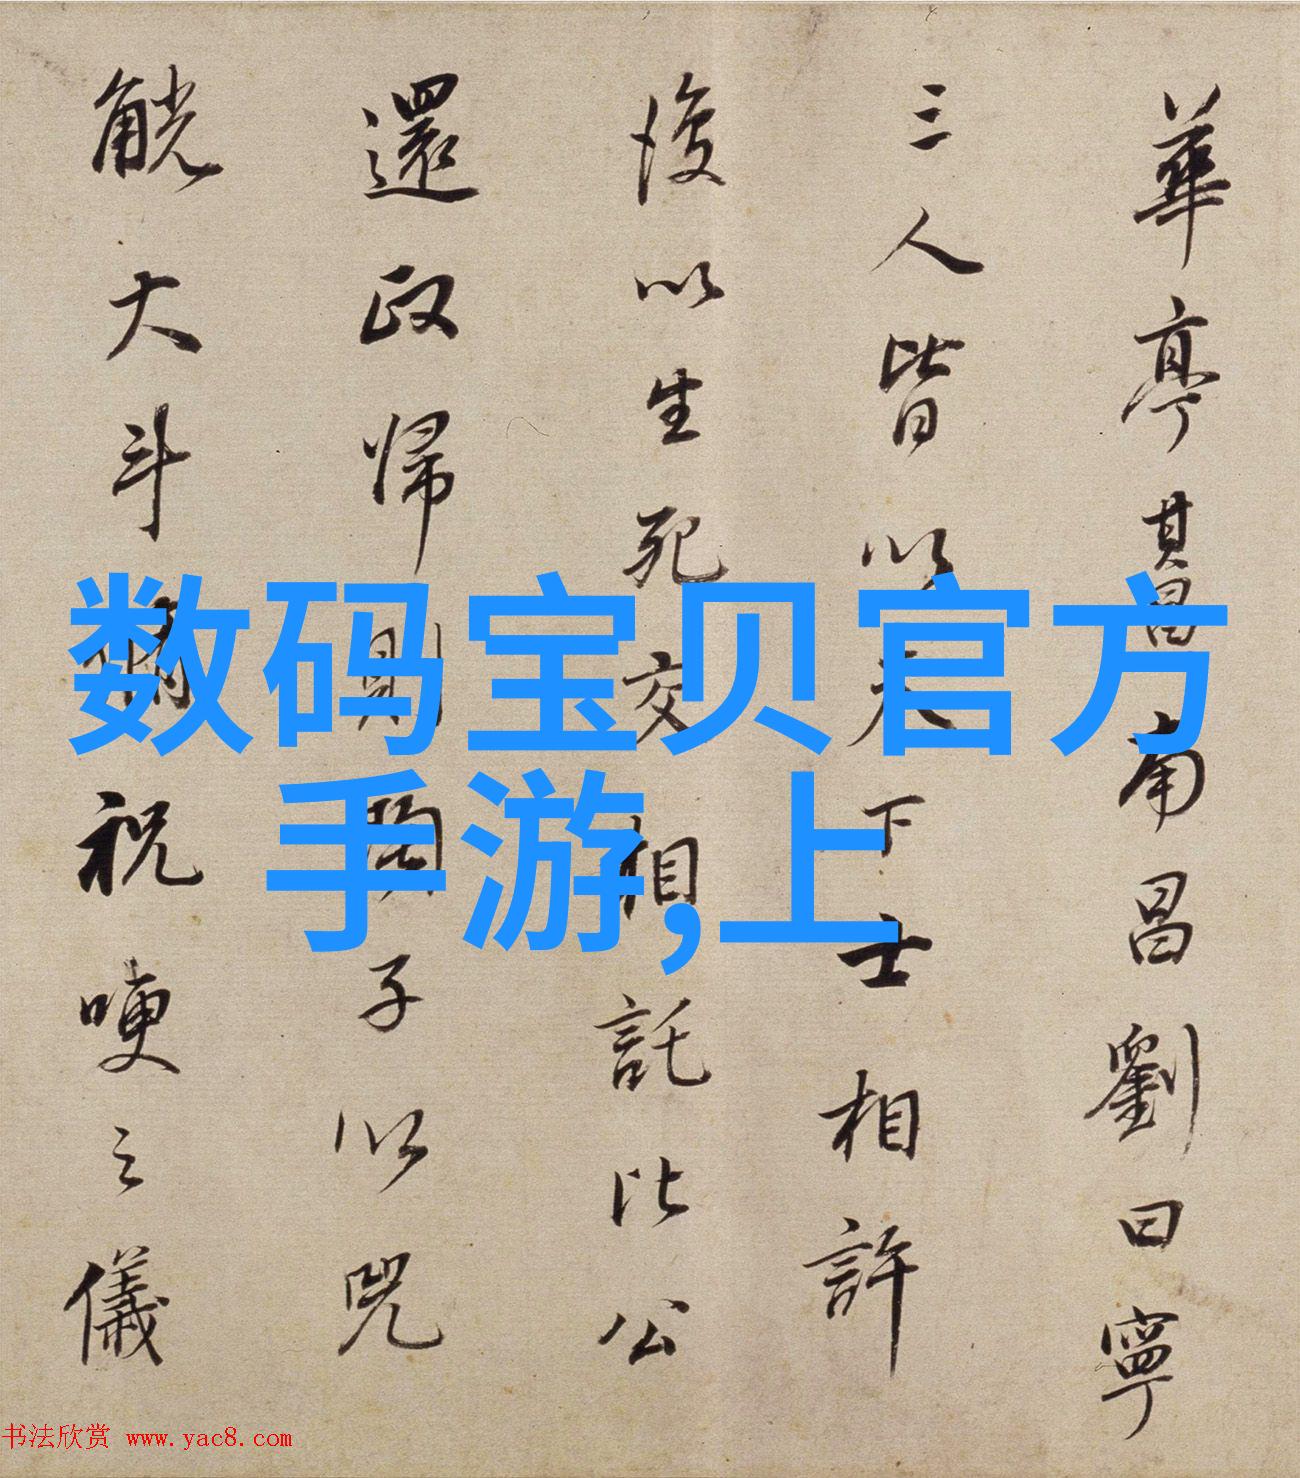 華亭其昌南昌劉曰寧
三人皆以天下士相許
後以生死交相託比公
還政歸則子以兕
觥大斗祝哽之儀
数码宝贝官方
手游,上
书法欣赏 www.yac8.com